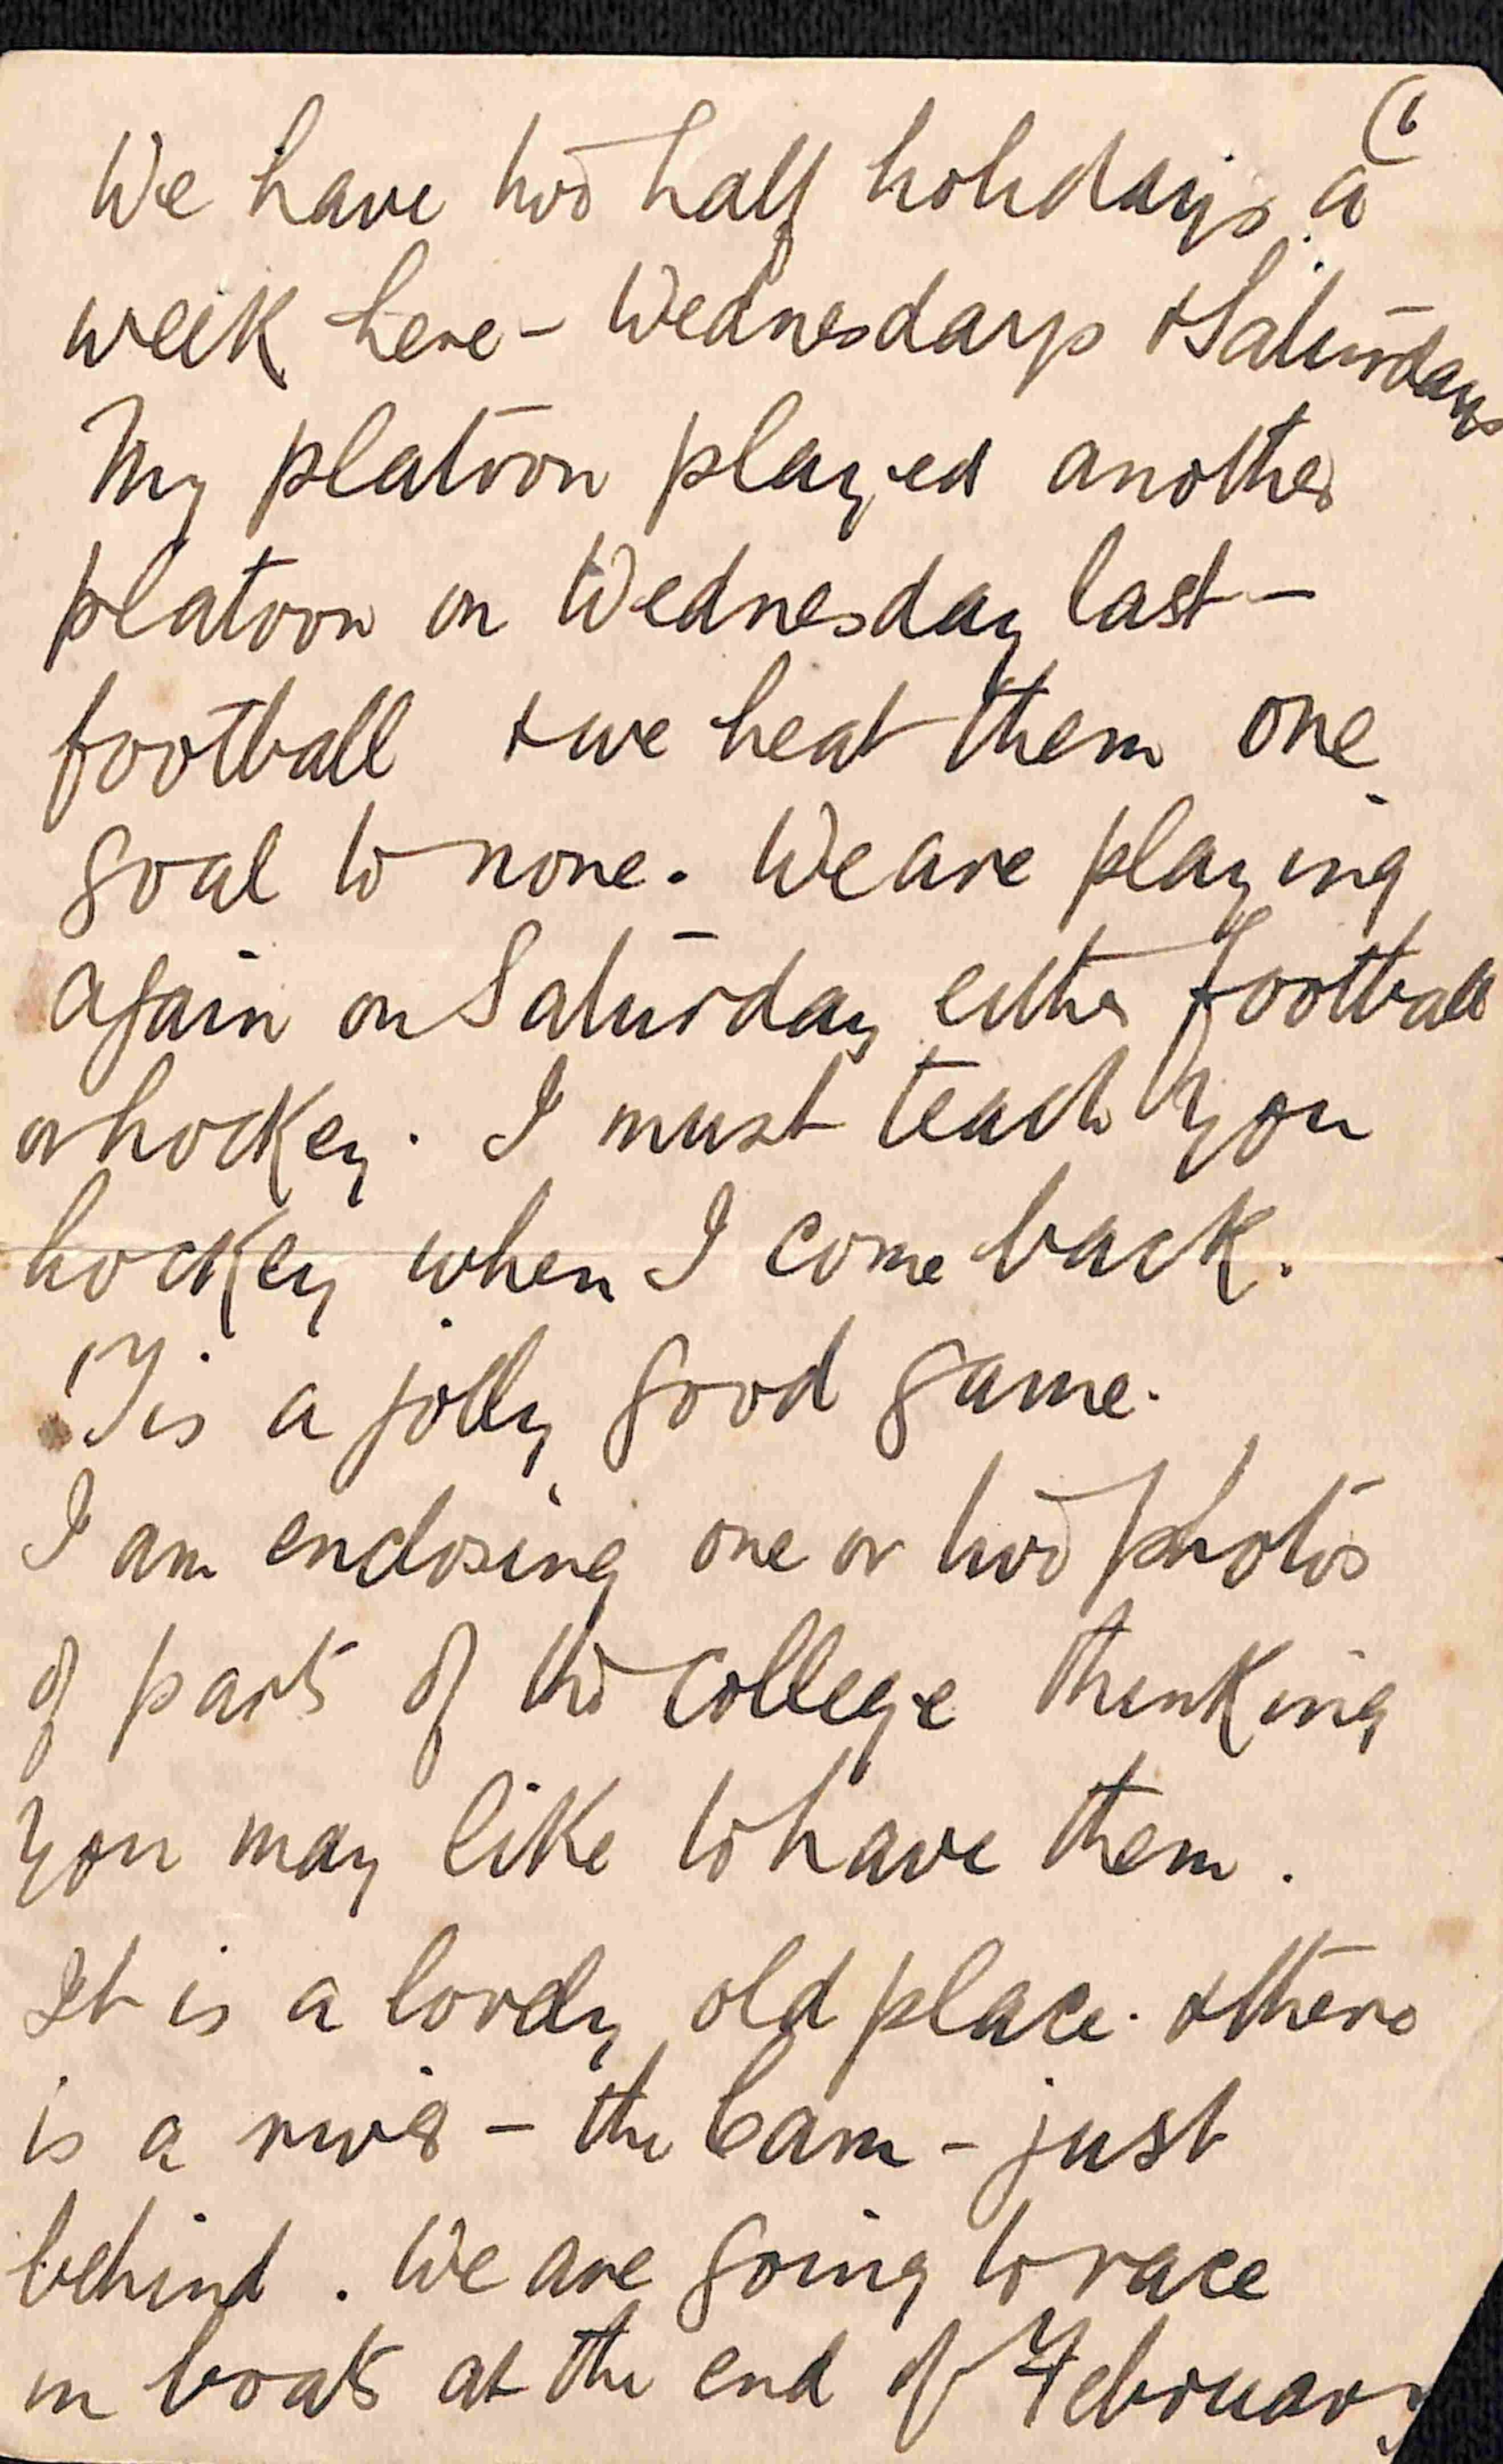 (6
We have two half holidays a
week here - Wednesdays & Saturdays
My platoon played another
platoon on Wednesday last -
football & we beat them one
goal to none. We are playing
again on Saturday either football
or hockey. I must teach you
hockey when I come back.
'Tis a jolly good game.
I am enclosing one or two photos
of parts of the College thinking
you may like to have them.
It is a lovely old place. & there
is a river - the Cam - just
behind. We are going to race
in boats at the end of February